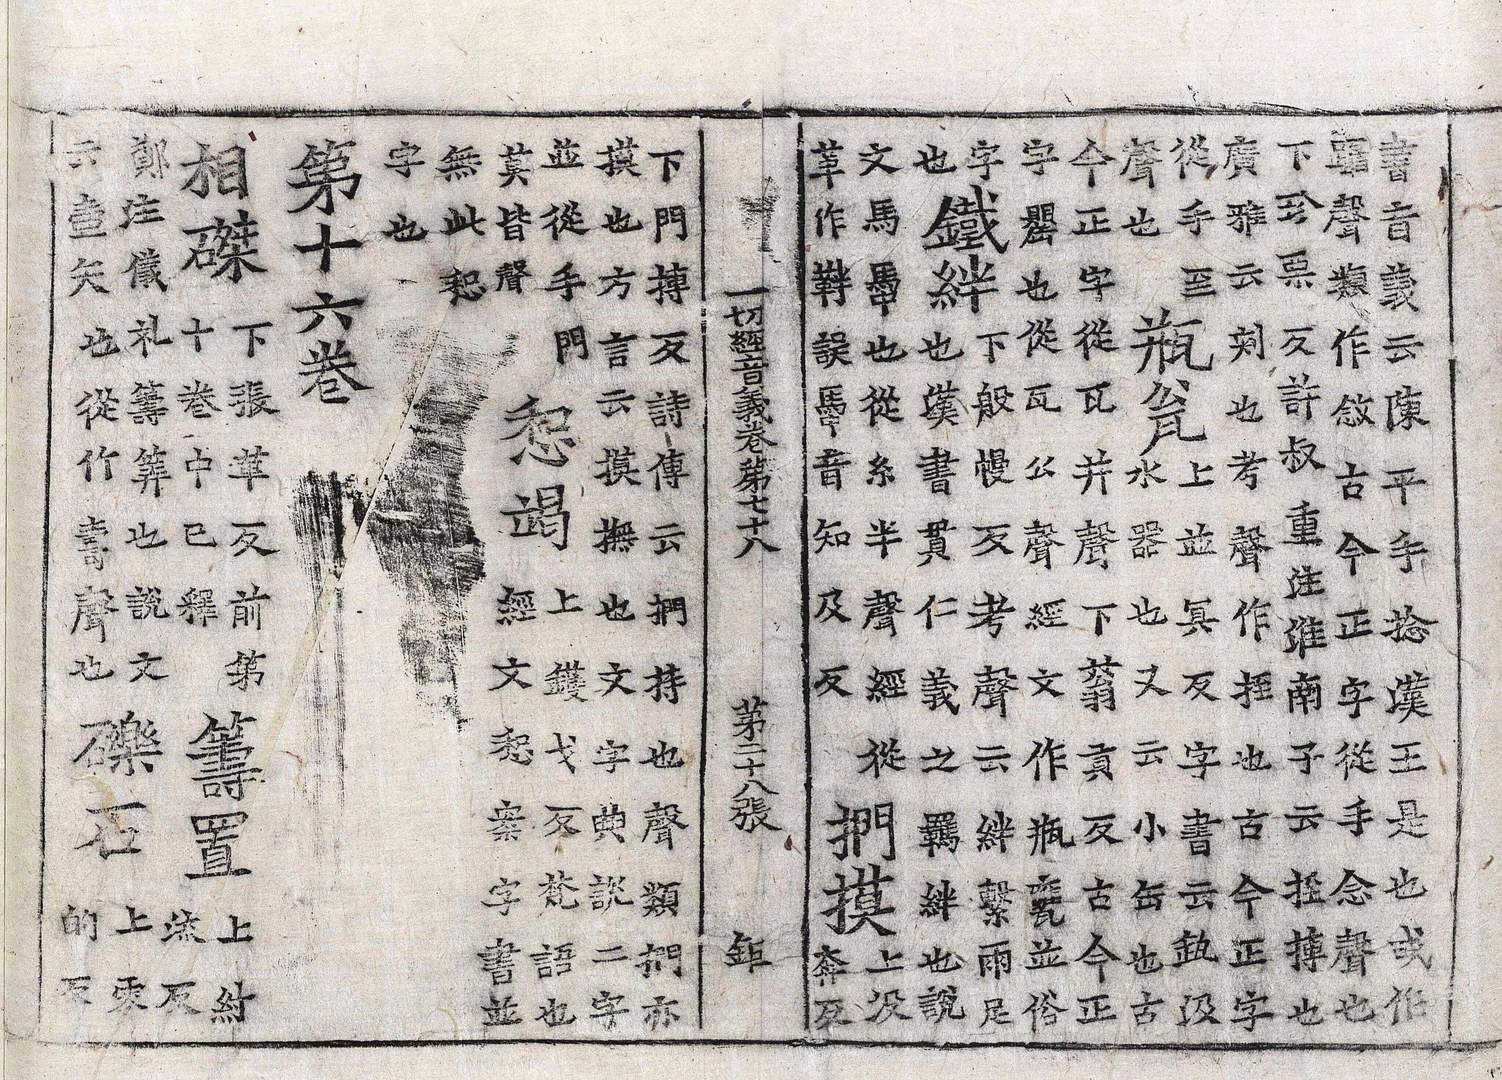 書音義云陳平手捻漢王是也或作
聲類作敜古今正字從手念聲也
下珍栗反許叔重注淮南子云挃摶也
廣雅云刺也考聲作挃也古今正字
從手至
聲也
瓶瓮
上並冥反字書云瓵汲
水器也又云小缶也古
今正字從瓦并聲下蓊貢反古今正
字罌也從瓦公聲經文作瓶甕並俗
字
也
鐵絆
下般幔反考聲云絆繫兩足
也漢書貫仁義之羈絆也說
文馬馽也從糸半聲經從
革作靽誤馽音知及反
捫摸
上没
奔反
一切經音義卷第七十八 第二十八張 鉅
下門摶反詩傳云捫持也聲類捫亦
摸也方言云摸撫也文字典說二字
並從手門
莫皆聲
惒竭
上鑊戈反梵語也
經文惒案字書並
無此惒
字也
第十六卷
相磔
下張革反前第
十卷中已釋
籌置
上紂
流反
鄭注儀礼籌筭也說文
云壺矢也從竹壽聲也
礫石
上零
的反